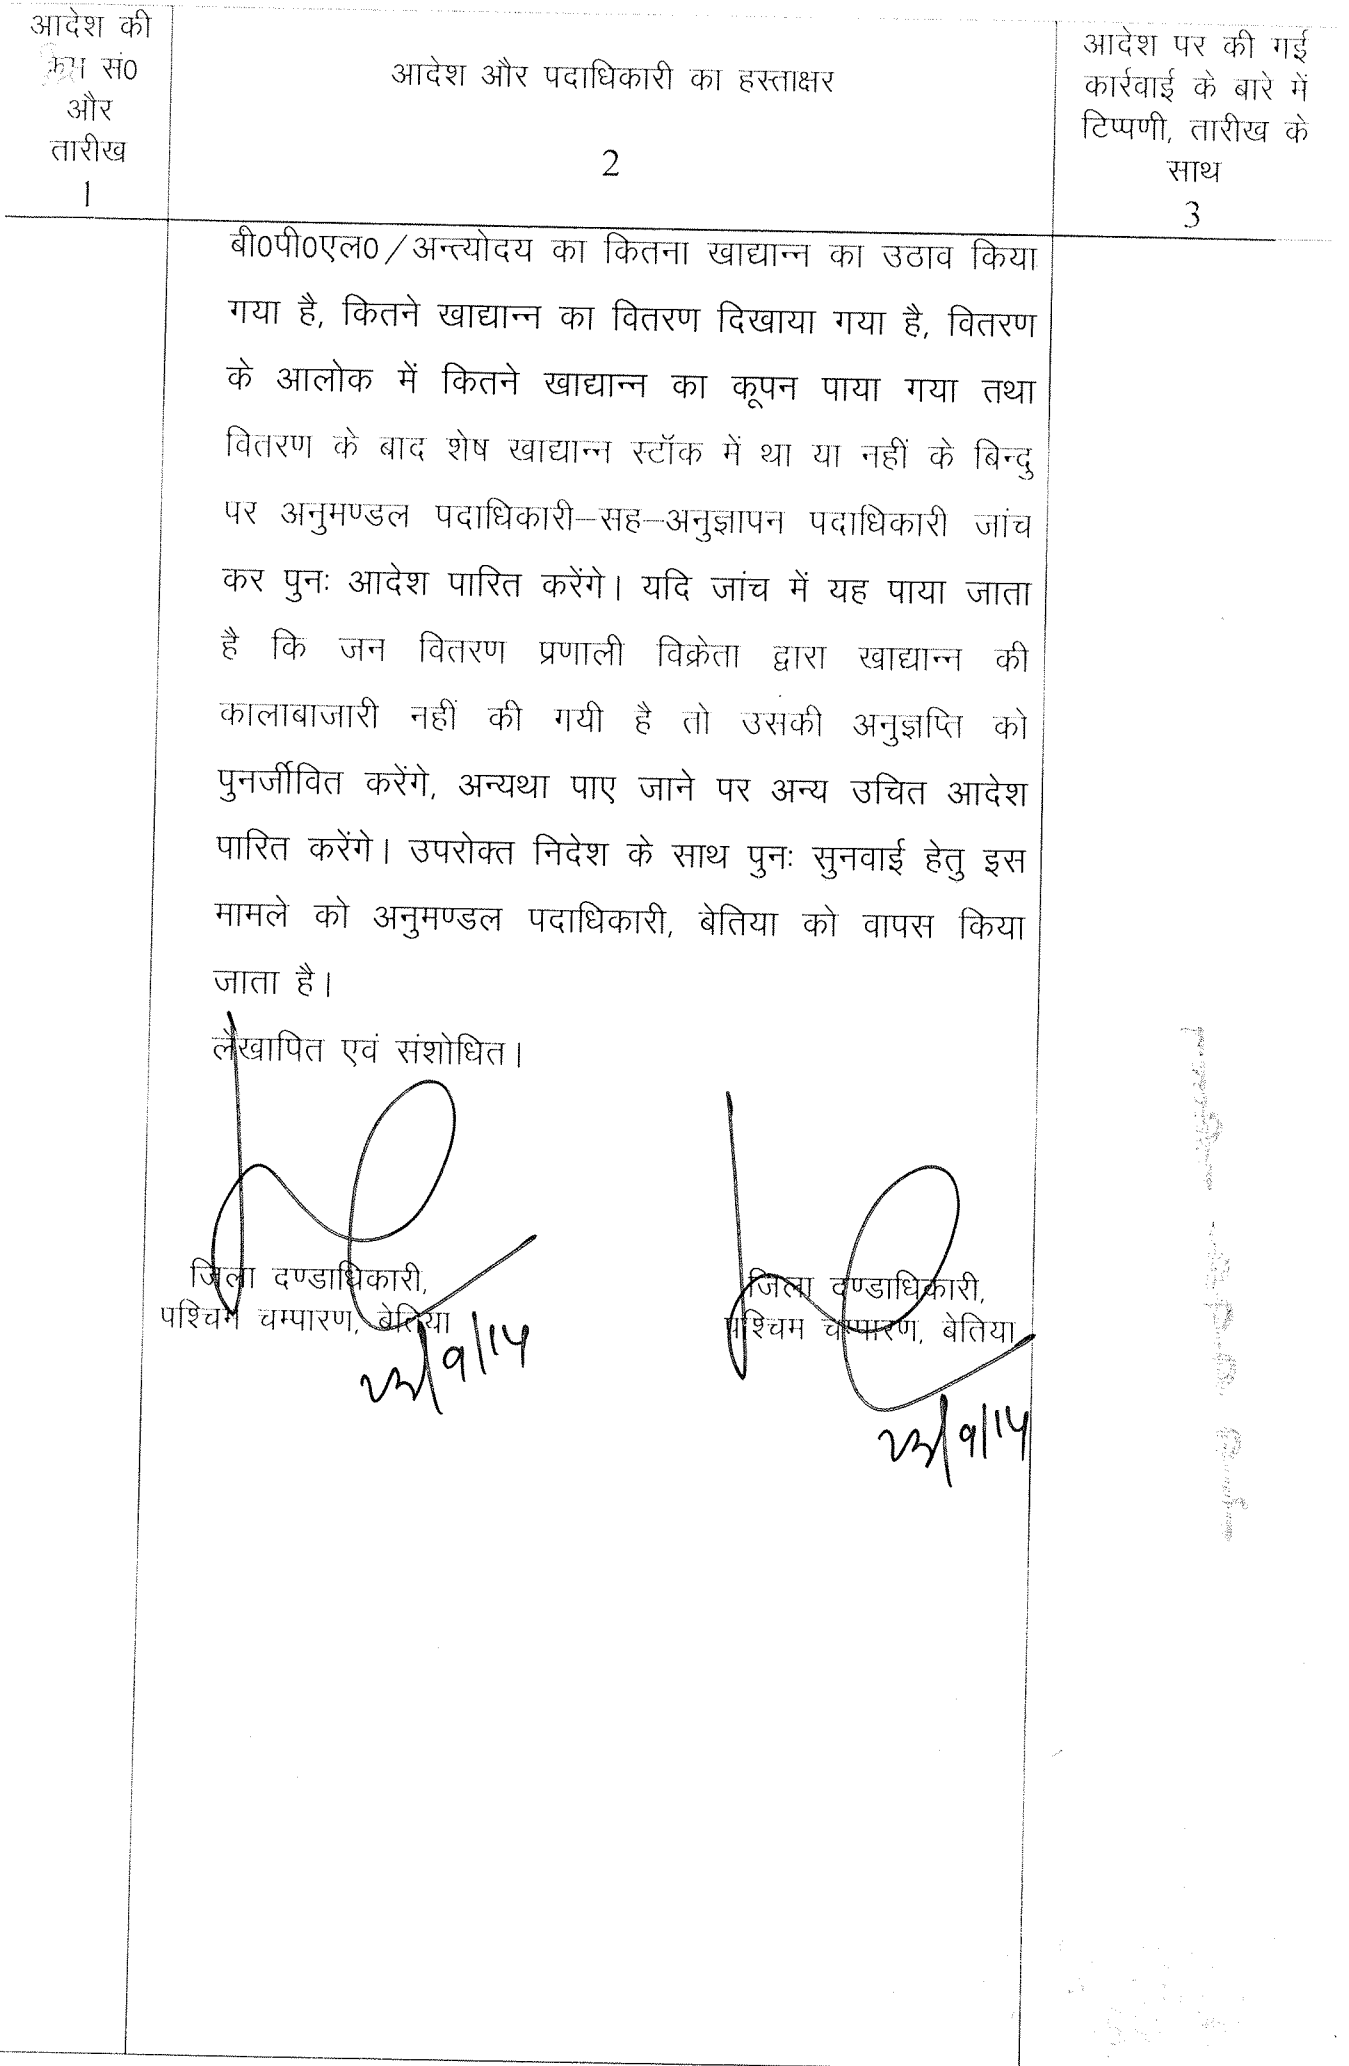 आदेश की
क्रम सं0
और
तारीख
1
आदेश और पदाधिकारी का हस्ताक्षर
2
आदेश पर की गई
कार्रवाई के बारे में
टिप्पणी, तारीख के
साथ
3
बी0पी0एल0/अन्त्योदय का कितना खाद्यान्न का उठाव किया
गया है, कितने खाद्यान्न का वितरण दिखाया गया है, वितरण
के आलोक में कितने खाद्यान्न का कूपन पाया गया तथा
वितरण के बाद शेष खाद्यान्न स्टॉक में था या नहीं के बिन्दु
पर अनुमण्डल पदाधिकारी–सह–अनुज्ञापन पदाधिकारी जांच
कर पुनः आदेश पारित करेंगे। यदि जांच में यह पाया जाता
है कि जन वितरण प्रणाली विक्रेता द्वारा खाद्यान्न की
कालाबाजारी नहीं की गयी है तो उसकी अनुज्ञप्ति को
पुनर्जीवित करेंगे, अन्यथा पाए जाने पर अन्य उचित आदेश
पारित करेंगे। उपरोक्त निदेश के साथ पुनः सुनवाई हेतु इस
मामले को अनुमण्डल पदाधिकारी, बेतिया को वापस किया
जाता है।
लेखापित एवं संशोधित।
जिला दण्डाधिकारी,
पश्चिम चम्पारण, बेतिया
23/9/14
जिला दण्डाधिकारी,
पश्चिम चम्पारण, बेतिया
23/9/14